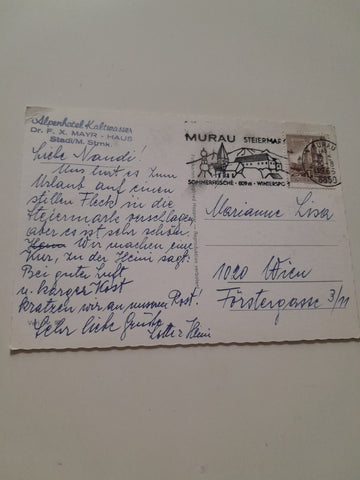 Alpenhotel Kaltwasser
Dr. F. X. MAYR - HAUS
Stadl/M. Stmk.
MURAU STEIERMARK
SOMMERFRISCHE · 809 m · WINTERSPORT
Liebe Nandi!
Uns hat es zum
Urlaub auf einen
stillen Fleck in die
Steiermark verschlagen,
aber es ist sehr schön.
Wir machen eine
Kur, zu der Heini sagt:
Bei guter Luft
u. karger Kost
kratzen wir an unserem Rost.
Sehr liebe Grüße
Lotte + Heini
Marianne Lisa
1020 Wien
Förstergasse 3/11